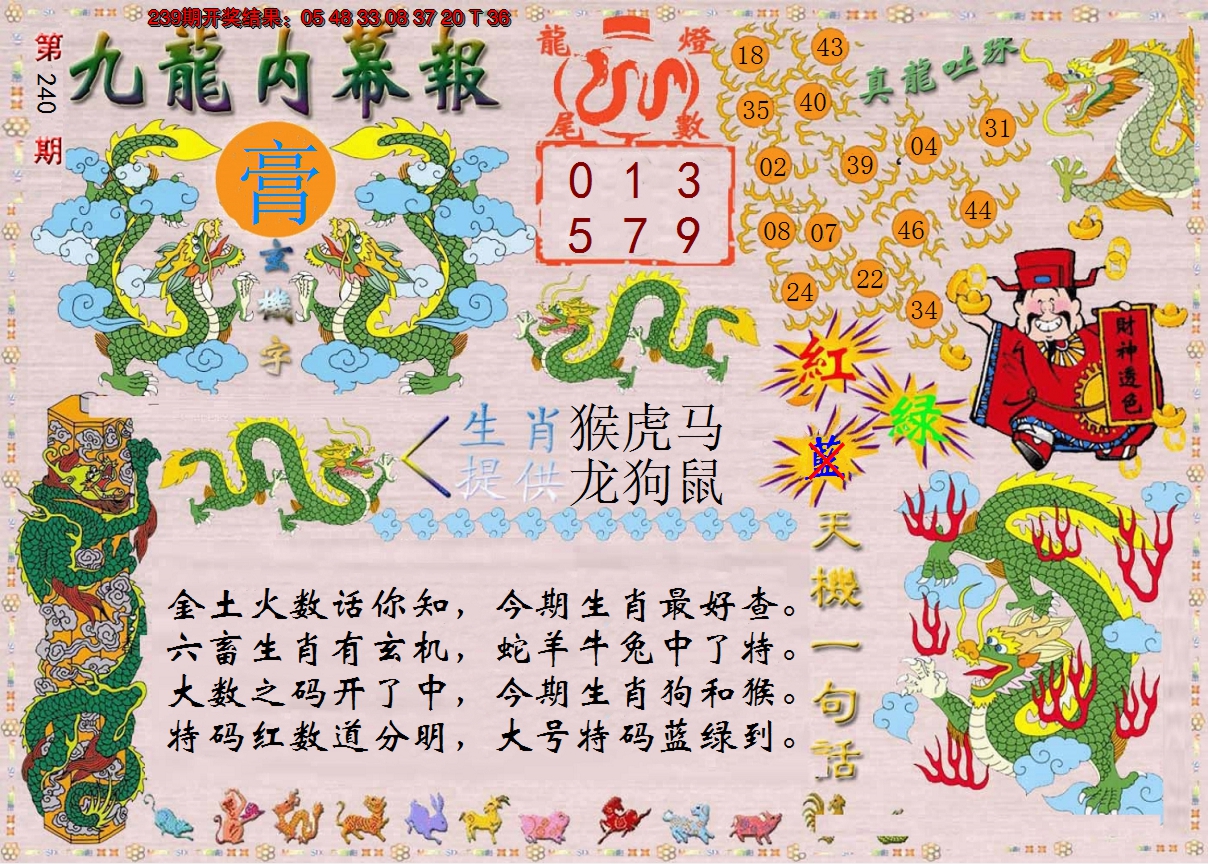 239期开奖结果：05 48 33 08 37 20 T 36
第240期
九龍内幕報
膏
玄機字
龍燈尾數
0 1 3
5 7 9
真龍吐珠
18 43
35 40
04 31
02 39
44
08 07 46
22
24 34
財神透色
紅
绿
藍
生肖提供
猴虎马
龙狗鼠
天機一句話
金土火数话你知，今期生肖最好查。
六畜生肖有玄机，蛇羊牛兔中了特。
大数之码开了中，今期生肖狗和猴。
特码红数道分明，大号特码蓝绿到。